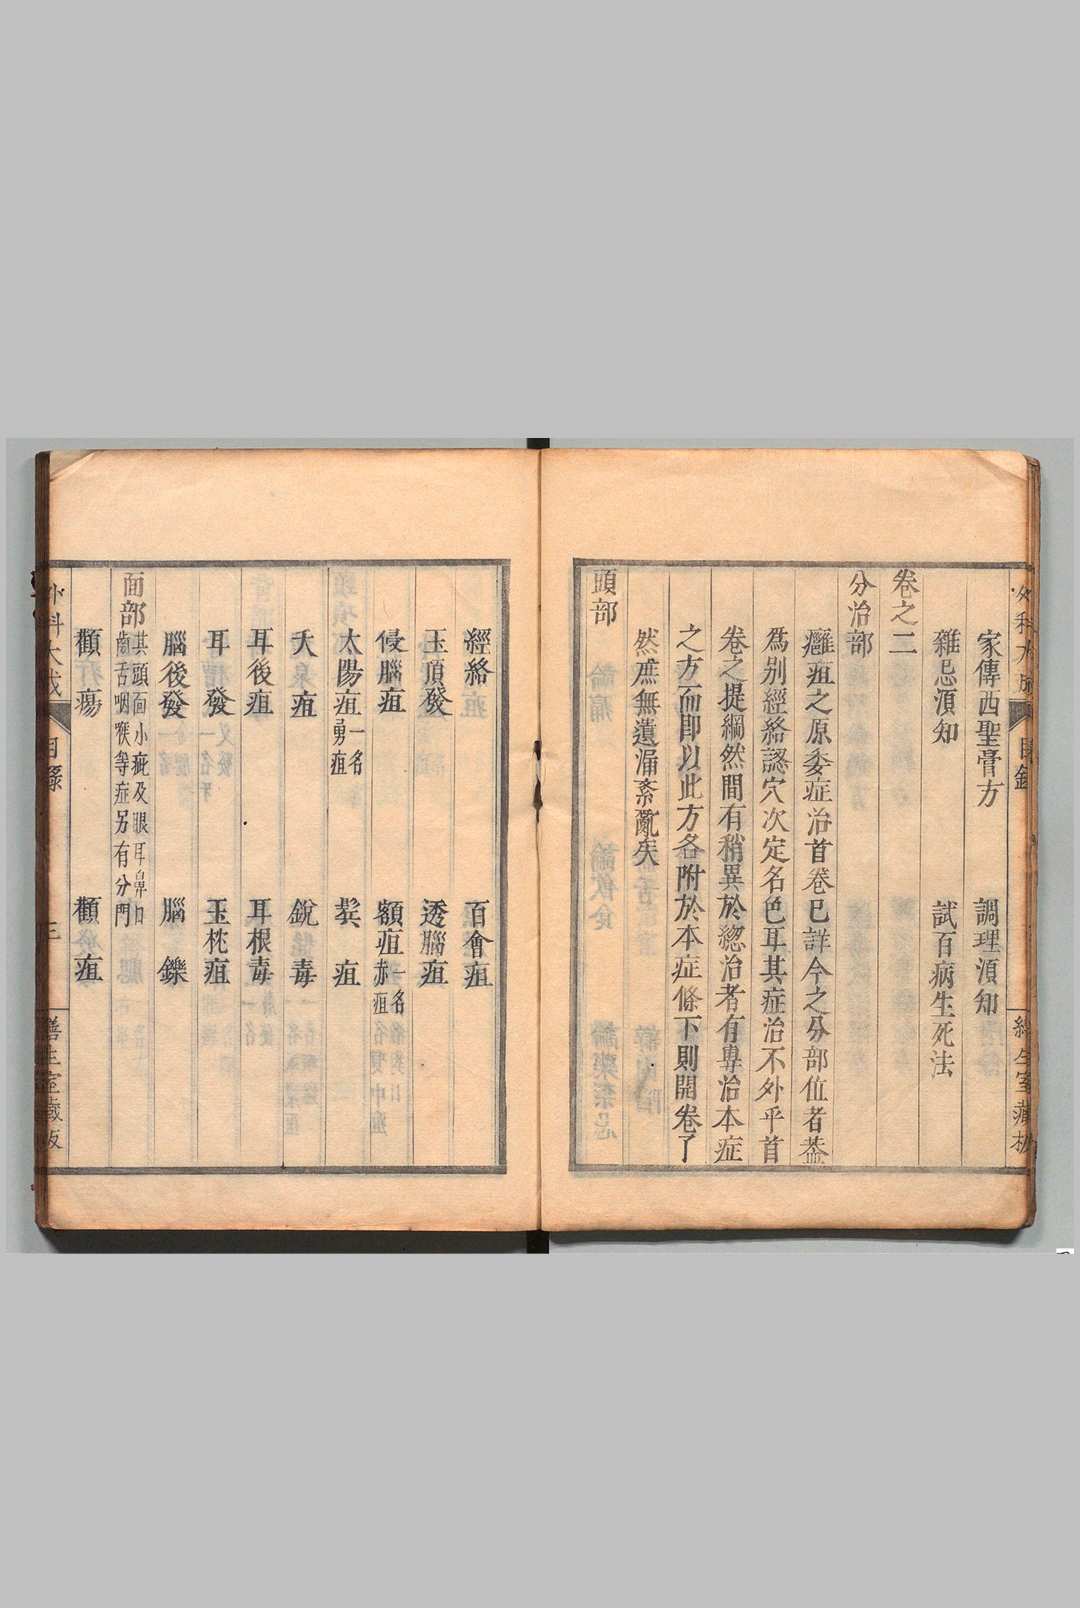 家傳西聖膏方　調理湏知
雜忌湏知　試百病生死法
卷之二
分治部
癰疽之原委症治首卷巳詳今之分部位者葢
爲别經絡認穴次定名色耳其症治不外乎首
卷之提綱然間有稍異於總治者有專治本症
之方而即以此方各附於本症條下則開卷了
然庶無遺漏紊亂矣
頭部
經絡　百會疽
玉頂發　透腦疽
侵腦疽　額疽
太陽疽一名勇疽　鬂疽
天疽　銳毒
耳後疽　耳根毒
耳發　玉枕疽
腦後發　腦鑠
面部其頭面小疵及眼耳鼻口齒舌咽喉等症另有分門
顴瘍　顴疽
外科大成　目錄　三　善生室藏板